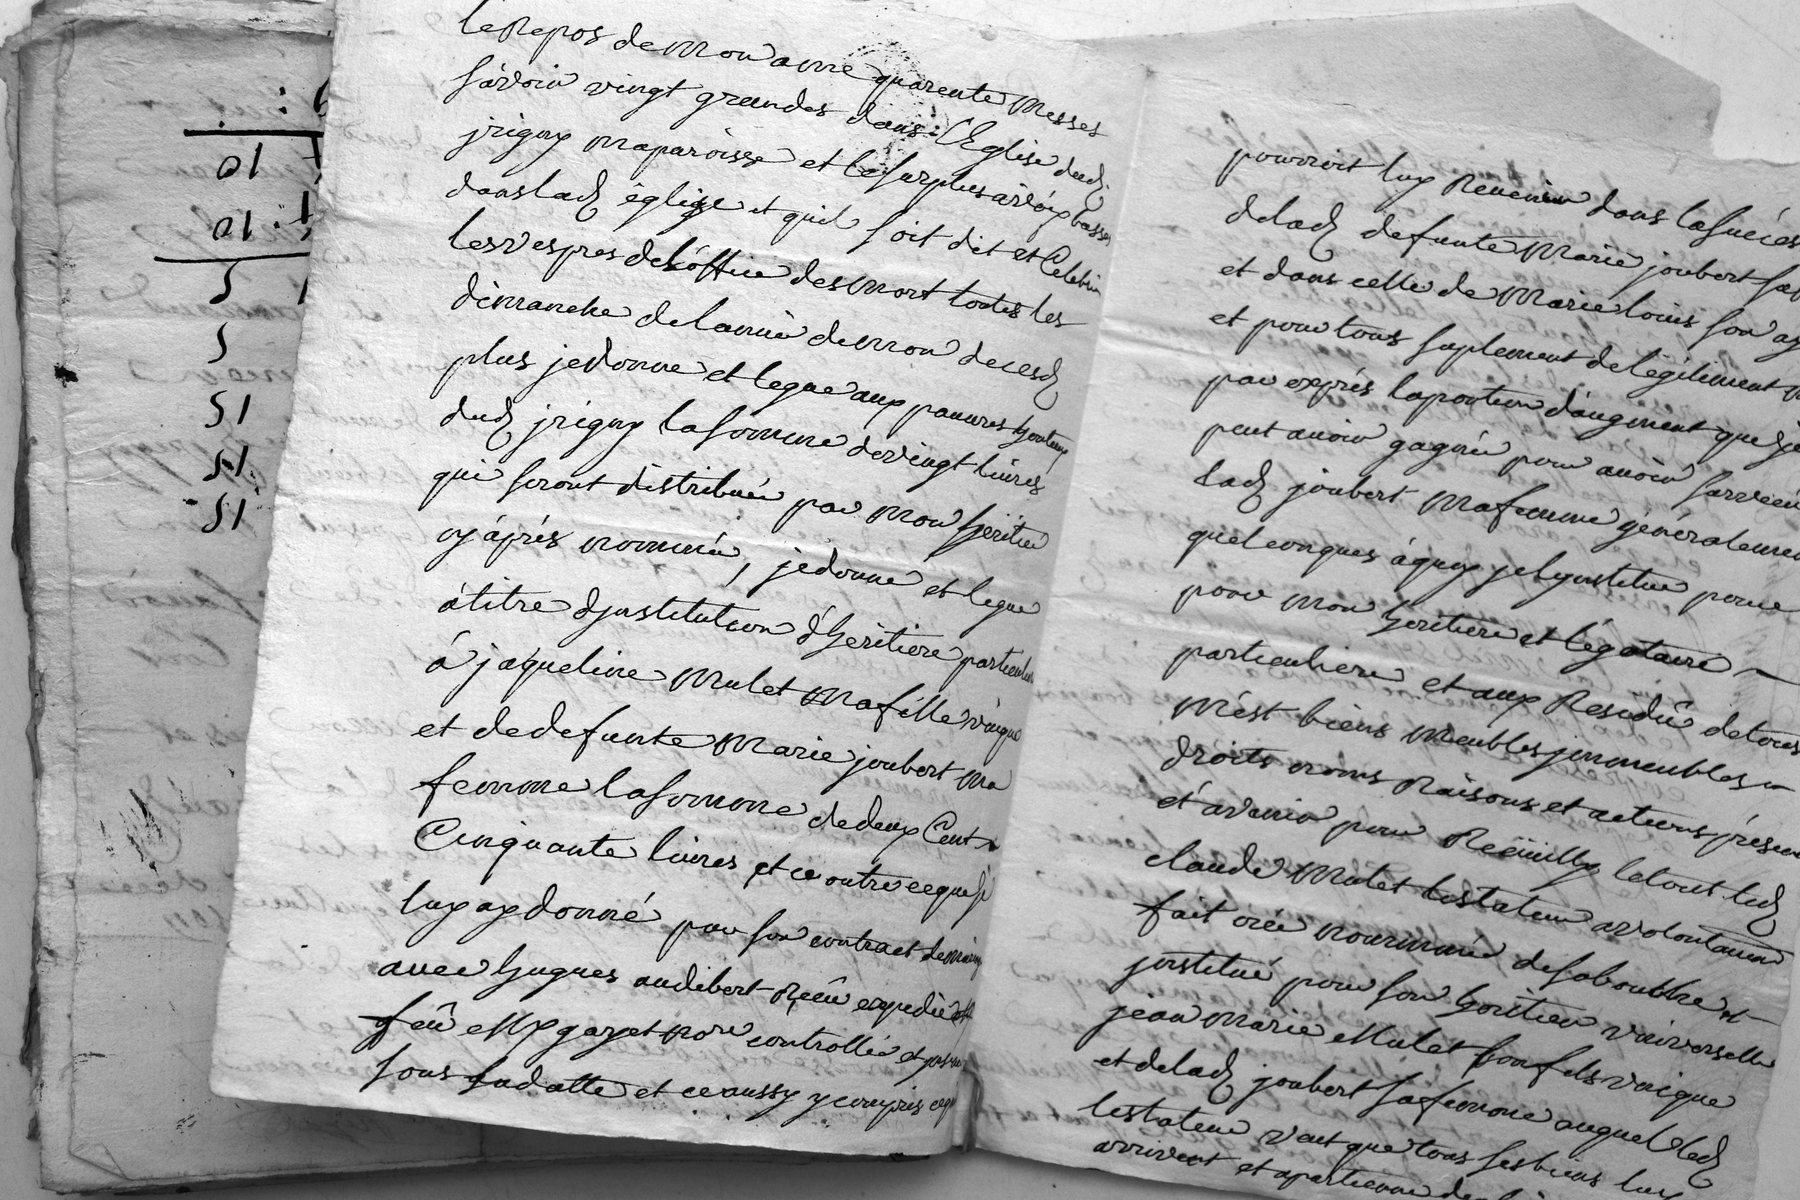 01
01
5
5
51
51
51
le Repos de mon ame quarente Messes
sávoir vingt grandes dans l'Eglise dud
jrigny ma paroisse et le surplus a voix basses
dans lad église et quil soit dit et Celebré
les vespres de l'office des mort toutes les
dimanche de lannée de mon deces
plus je donne et legue aux pauvres honteux
dud jrigny la somme de vingt livres
qui seront distribuée par mon heritié
cy áprés nommée, je donne et legue
átitre d'jnstitution d'heritiere particuliere
á jaqueline Mulet ma fille vnique
et de defunte Marie joubert ma
femme la somme de deux Cent
Cinquante livres et ce outre ce que je
luy ay donné par son contract de mariage
avec hugues audibert Reçû expedié
feû Mᵉ gayet noʳᵉ controllé et
sous sa datte et ce aussy y compris ce que
pourroit luy Revenir dans la succes
delad defunte Marie joubert sa
et dans celle de Marie louis son
et pour tous suplement de légitiment
par exprés la portion d'augment que je
peut avoir gagnée pour avoir survécu
lad joubert ma femme généralement
quelconques áquoy je l'jnstitue pour
pour mon heritiere et légataire
particuliere et aux Residû de tous
mest biens meubles jmmeubles
droits noms Raisons et actions présen
et avenir pour Reçüilly le tout led
claude Mulet testateur a volontairem
fait créé nommée de sa bouche et
jnstitué pour son heritier vniverselle
jean Marie Mulet son fils vnique
et delad joubert sa femme auquel led
testateur veut que tous ses biens luy
arrivent et apartienne